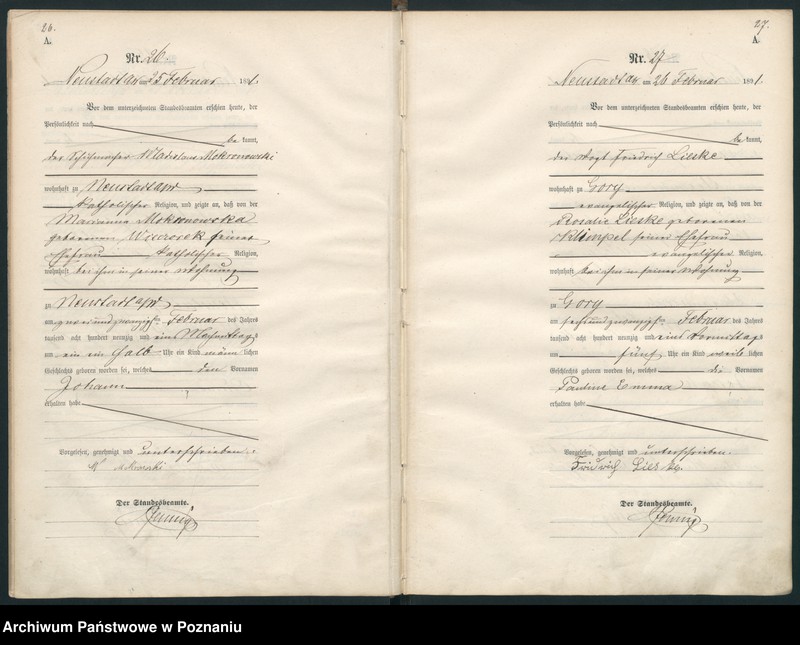 26.
A.
Nr. 26.
Neustadt a/W am 25 Februar 1891.
Vor dem unterzeichneten Standesbeamten erschien heute, der
Persönlichkeit nach
bekannt,
der Schuhmacher Wladislaus Mokronowski
wohnhaft zu Neustadt a/W
katholischer Religion, und zeigte an, daß von der
Marianna Mokronowska
geborenen seiner
Ehefrau katholischer Religion,
wohnhaft bei ihm in seiner Wohnung
zu Neustadt a/W
am zwanzigsten Februar des Jahres
tausend acht hundert neunzig und eins Nachmittags
um ein ein halb Uhr ein Kind männlichen
Geschlechts geboren worden sei, welches den Vornamen
Johann
erhalten habe
Vorgelesen, genehmigt und unterschrieben.
Der Standesbeamte.
27.
A.
Nr. 27
Neustadt a/W am 26 Februar 1891.
Vor dem unterzeichneten Standesbeamten erschien heute, der
Persönlichkeit nach
bekannt,
der Vogt Friedrich Lieske
wohnhaft zu Gory
evangelischer Religion, und zeigte an, daß von der
Rosalie Lieske geborenen
Klimpel seiner Ehefrau
evangelischer Religion,
wohnhaft bei ihm in seiner Wohnung
zu Gory
am sechsundzwanzigsten Februar des Jahres
tausend acht hundert neunzig und eins Vormittags
um fünf Uhr ein Kind weiblichen
Geschlechts geboren worden sei, welches die Vornamen
Pauline Emma
erhalten habe
Vorgelesen, genehmigt und unterschrieben.
Fridrich Lieske.
Der Standesbeamte.
Archiwum Państwowe w Poznaniu